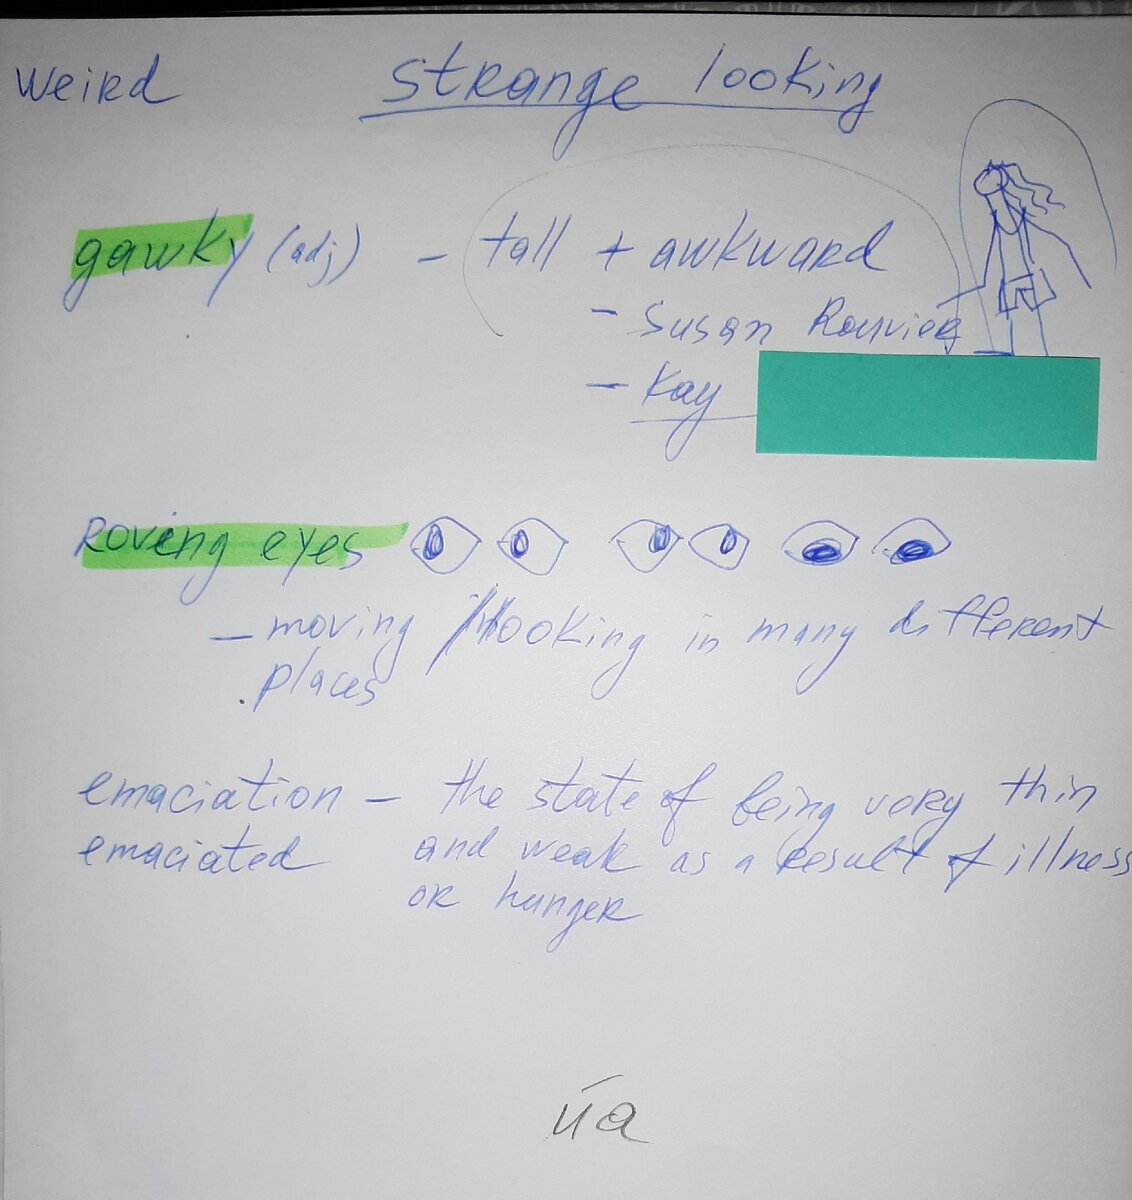 weird strange looking
gawky (adj) - tall + awkward
- Susan
- Kay
Roving eyes
- moving / looking in many different
places
emaciation - the state of being very thin
emaciated and weak as a result of illness
or hunger